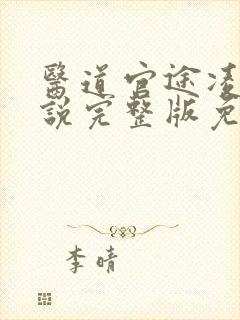 醫道官途凌
說完整版免
李晴